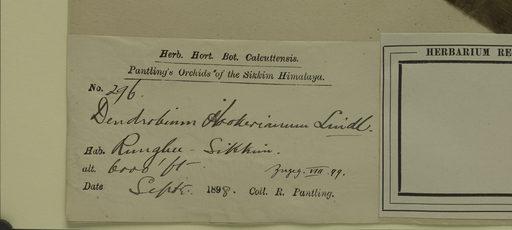 Herb. Hort. Bot. Calcuttensis.
Pantling's Orchids of the Sikkim Himalaya.
No. 296.
Dendrobium Hookerianum Lindl.
Hab. Runghee - Sikkim.
alt. 6000' ft
Zugeg. VIII. 99.
Date Septr. 1898. Coll. R. Pantling.
HERBARIUM RE